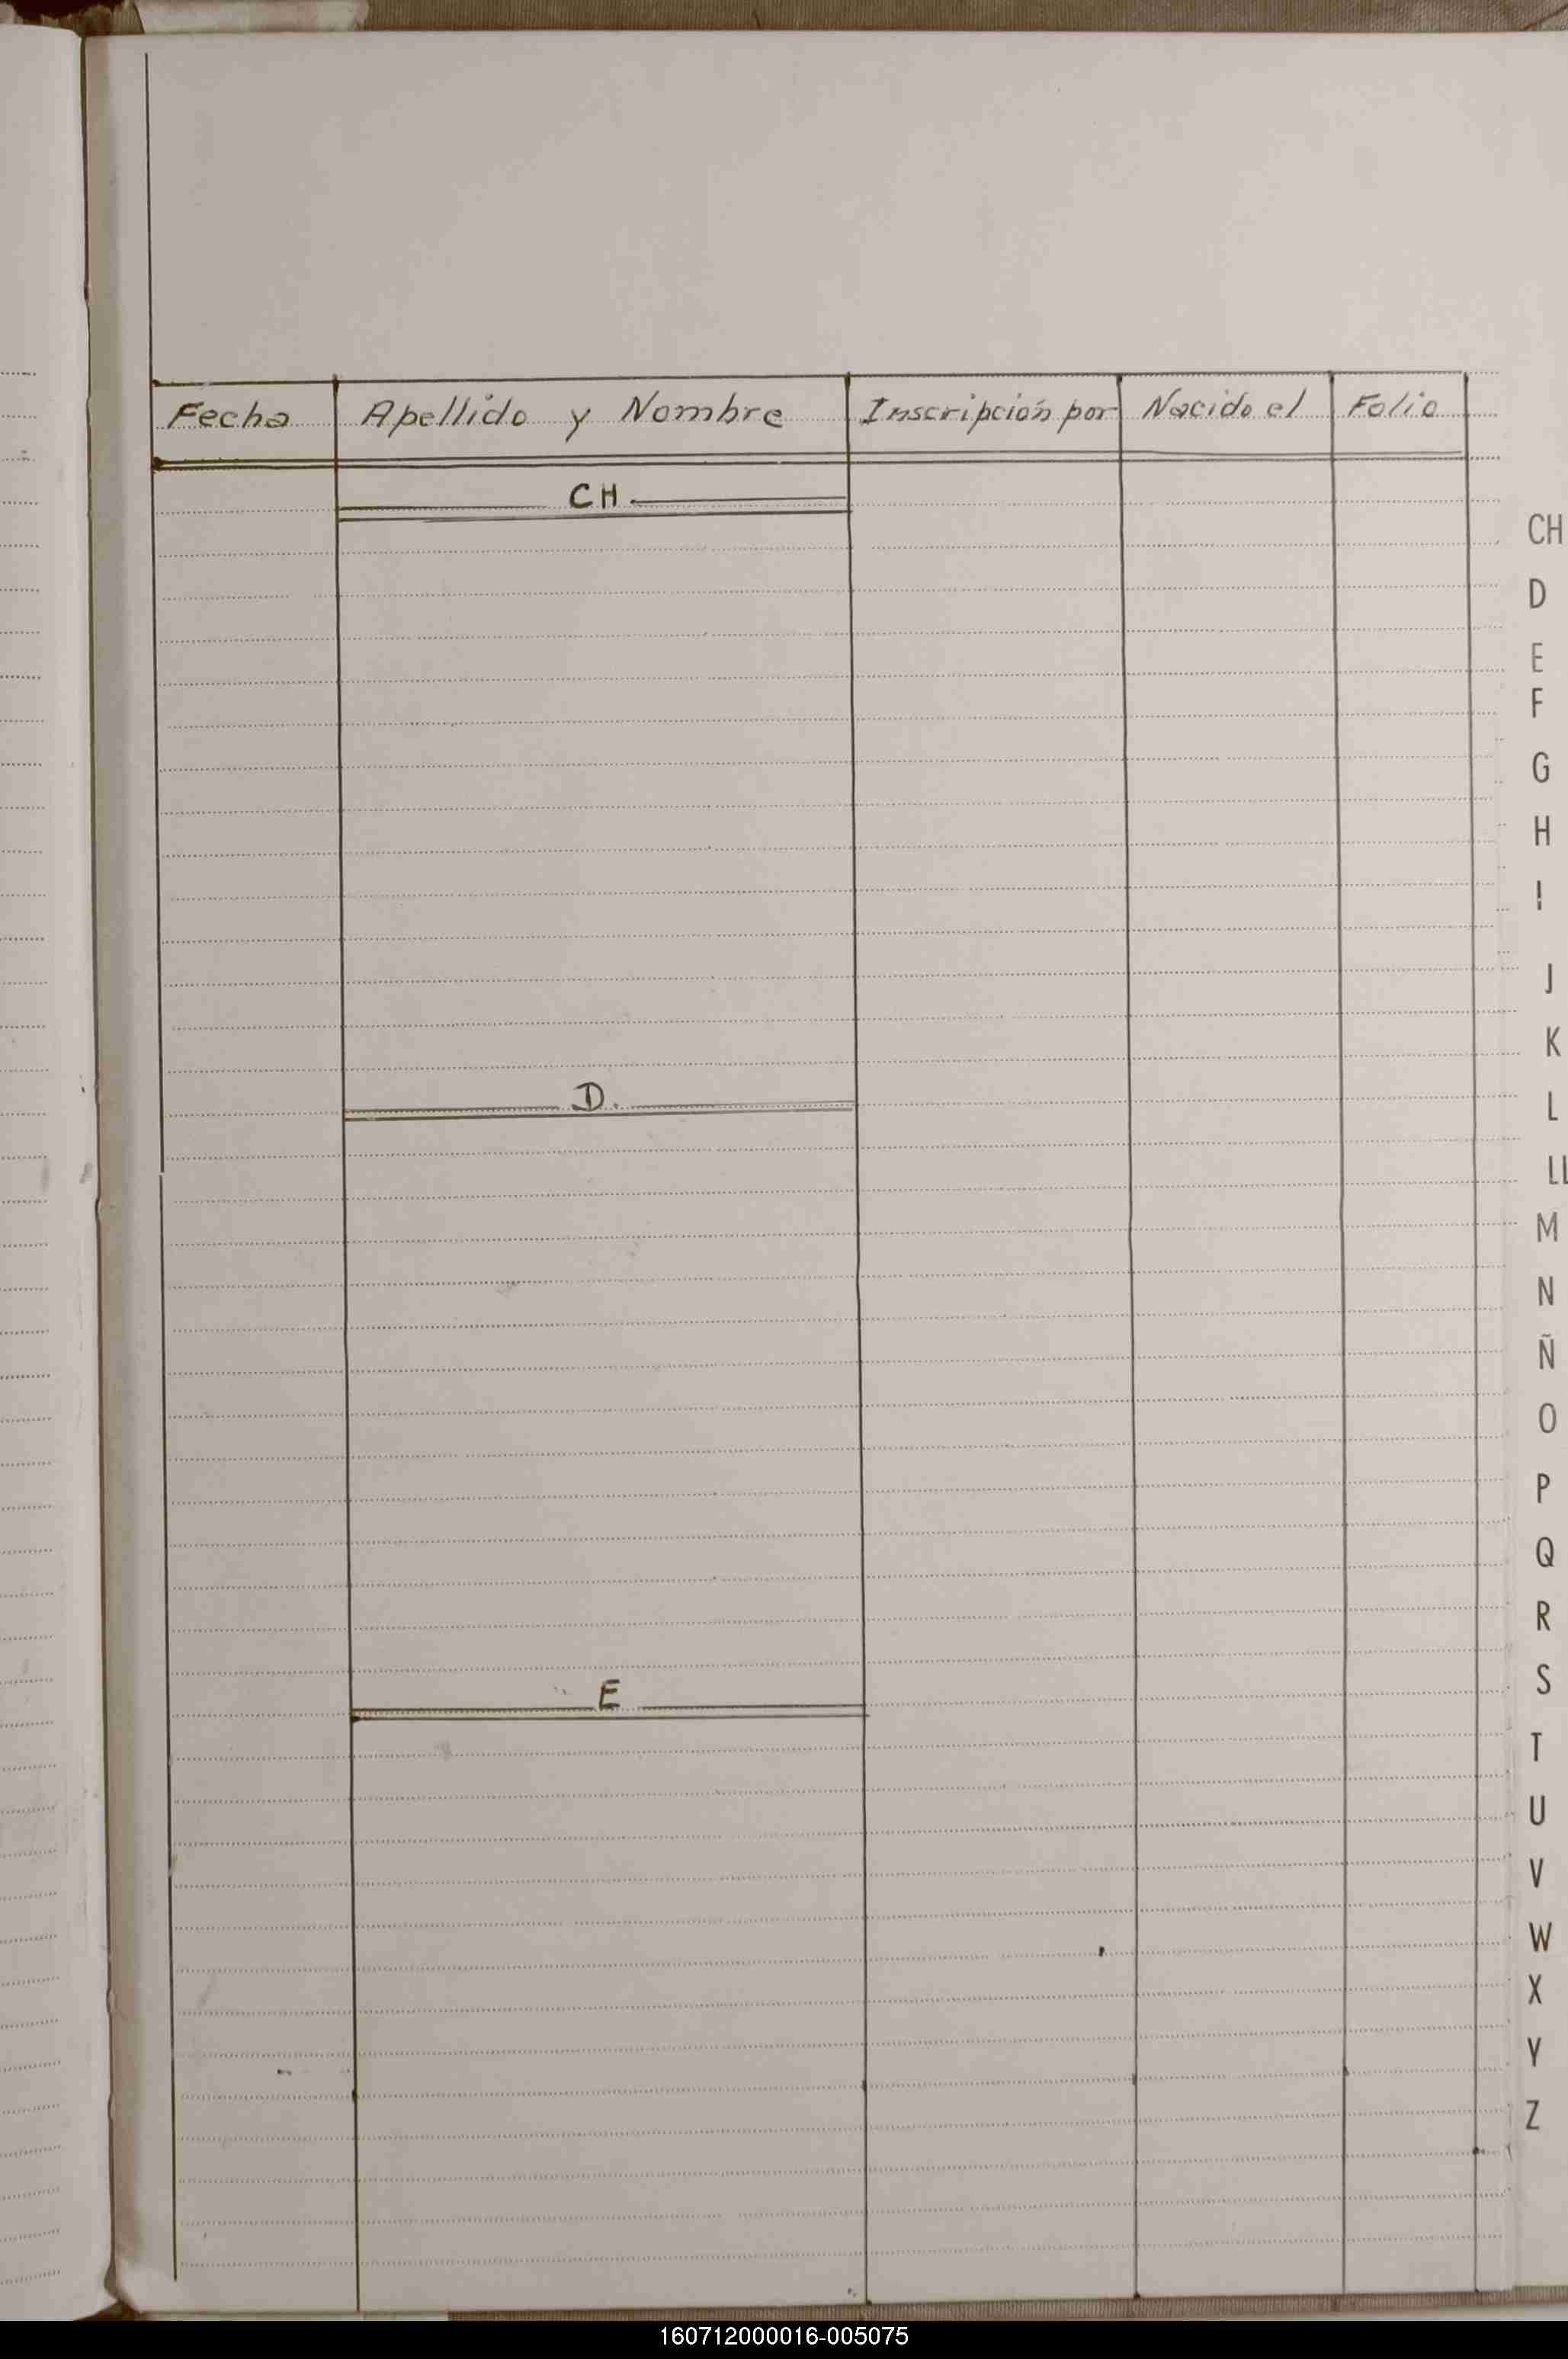 Fecha Apellido y Nombre Inscripción por Nacido el Folio
CH.
D.
E
CH
D
E
F
G
H
I
J
K
L
LL
M
N
Ñ
O
P
Q
R
S
T
U
V
W
X
Y
Z
160712000016-005075